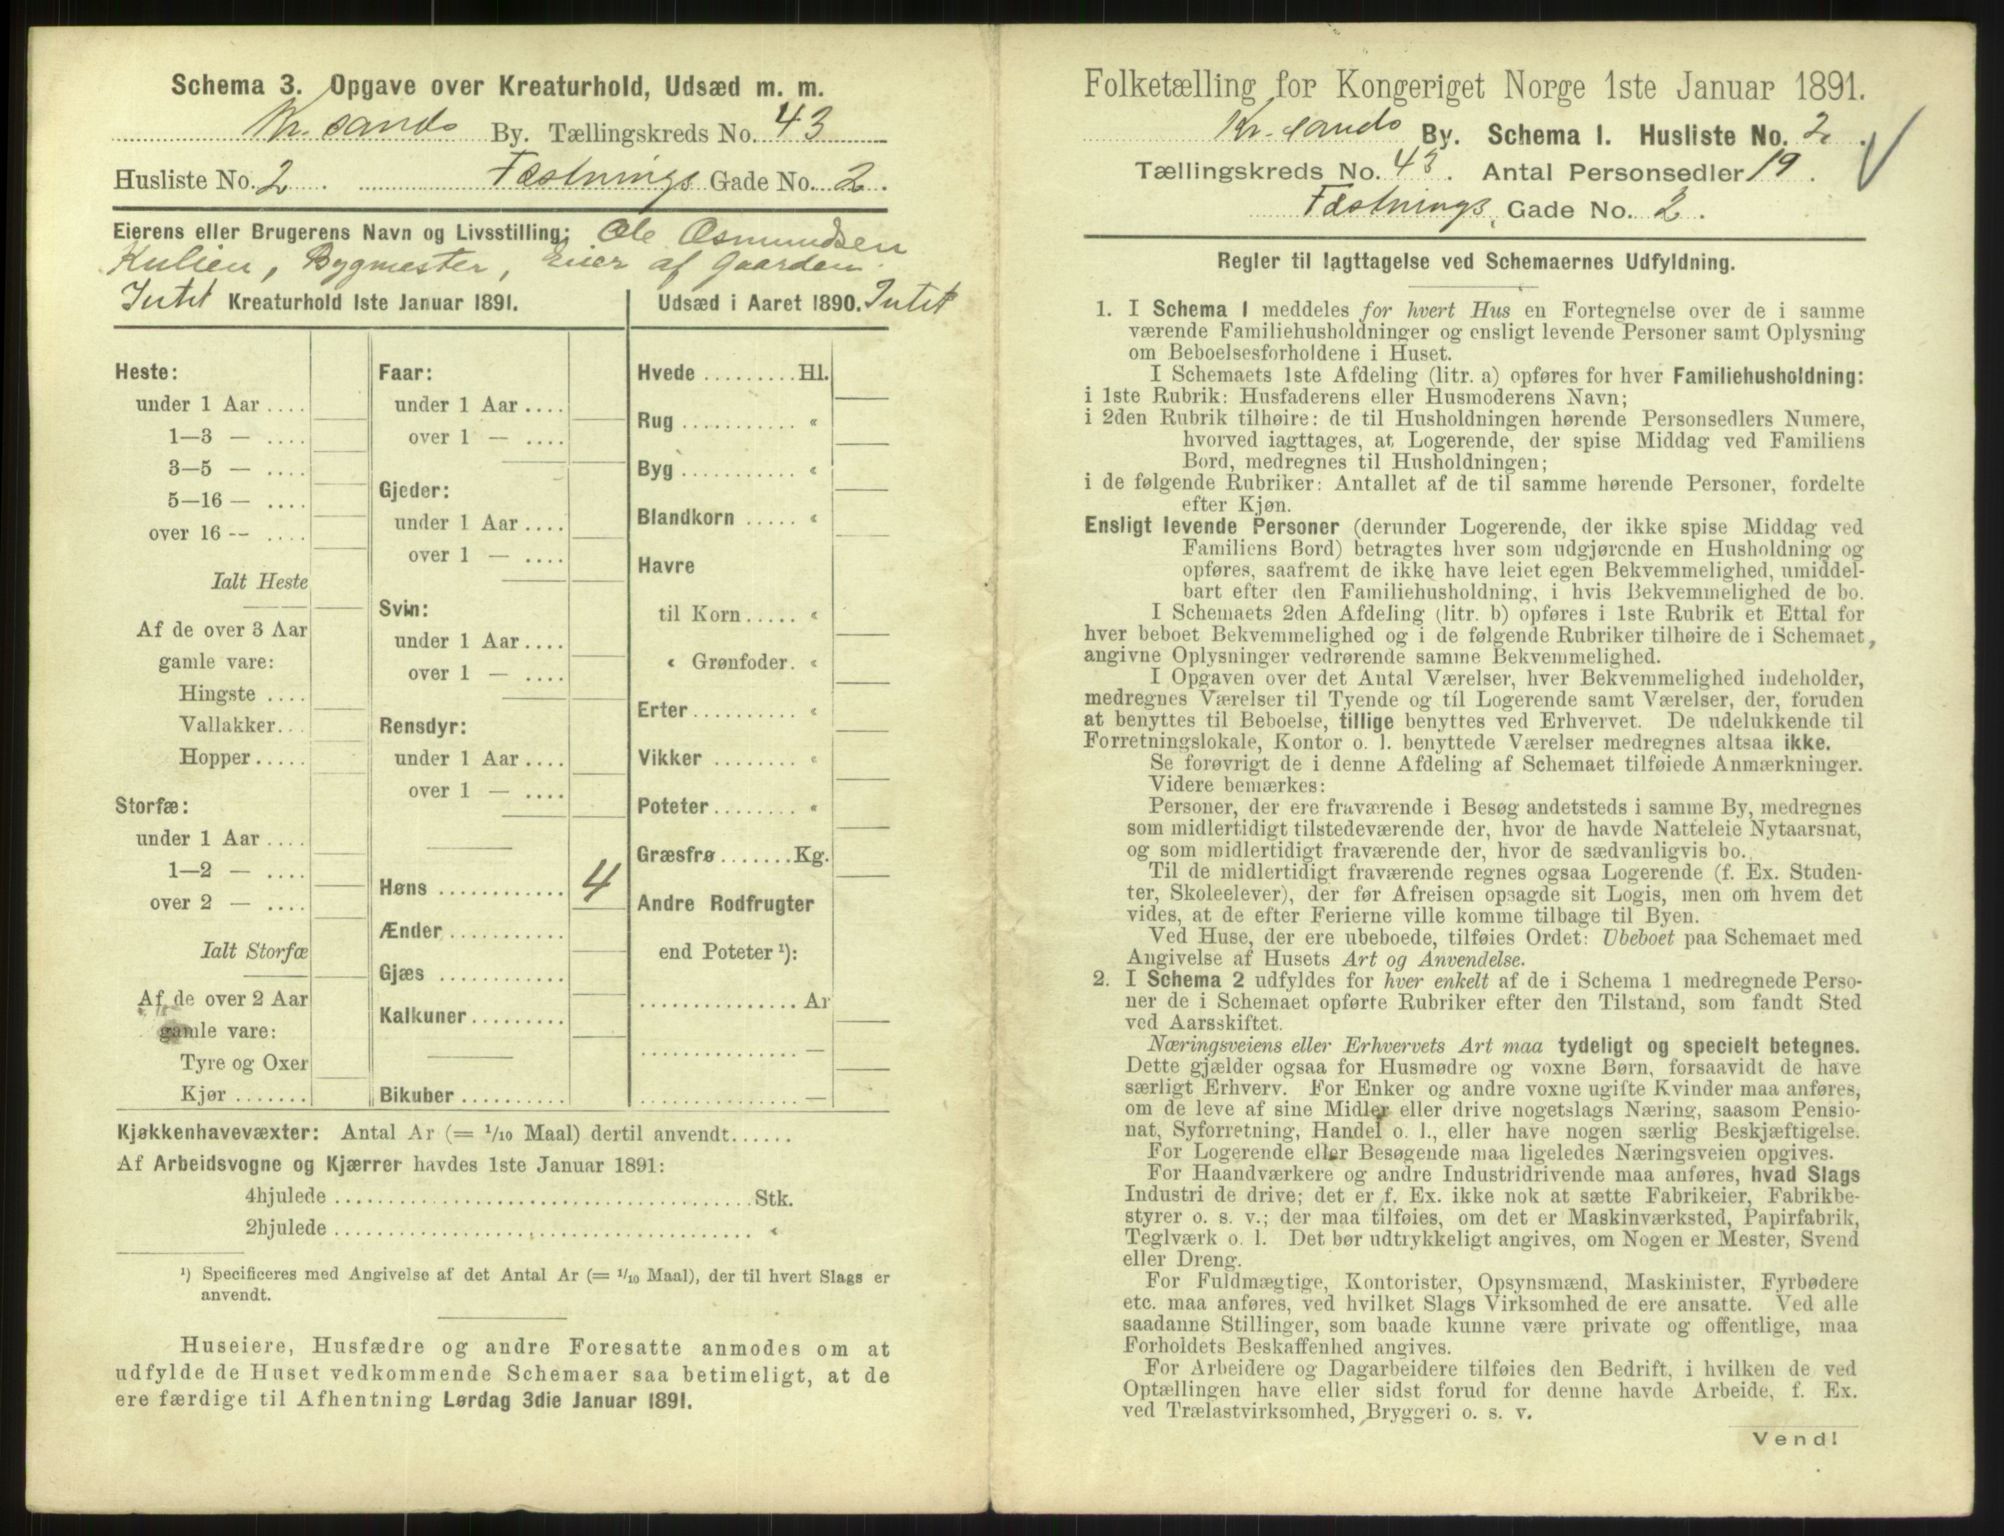 Schema 3. Opgave over Kreaturhold, Udsæd m. m.
Kr. sands By. Tællingskreds No. 43
Husliste No. 2 . Fæstnings Gade No. 2.
Eierens eller Brugerens Navn og Livsstilling: Ole Osmundsen
Kulien, Bygmester, Eier af Gaarden.
Intet Kreaturhold 1ste Januar 1891.
Heste:
under 1 Aar ....
1—3 — ....
3—5 — ....
5—16 — ....
over 16 — ....
Ialt Heste
Af de over 3 Aar
gamle vare:
Hingste ....
Vallakker...
Hopper.....
Storfæ:
under 1 Aar ....
1—2 — ....
over 2 — ....
Ialt Storfæ
Af de over 2 Aar
gamle vare:
Tyre og Oxer
Kjør .......
Faar:
under 1 Aar ....
over 1 — ....
Gjeder:
under 1 Aar ....
over 1 — ....
Svin:
under 1 Aar ....
over 1 — ....
Rensdyr:
under 1 Aar ....
over 1 — ....
Høns ............ 4
Ænder...........
Gjæs ............
Kalkuner.........
Bikuber ..........
Udsæd i Aaret 1890. Intet
Hvede .........Hl.
Rug ........... «
Byg ........... «
Blandkorn ..... «
Havre
til Korn..... «
« Grønfoder. «
Erter.......... «
Vikker ........ «
Poteter ........ «
Græsfrø.......Kg.
Andre Rodfrugter
end Poteter ¹):
................ Ar
................ —
................ —
Kjøkkenhavevæxter: Antal Ar (= 1/10 Maal) dertil anvendt......
Af Arbeidsvogne og Kjærrer havdes 1ste Januar 1891:
4hjulede ........................................Stk.
2hjulede ........................................ «
¹) Specificeres med Angivelse af det Antal Ar (= 1/10 Maal), der til hvert Slags er
anvendt.
Huseiere, Husfædre og andre Foresatte anmodes om at
udfylde de Huset vedkommende Schemaer saa betimeligt, at de
ere færdige til Afhentning Lørdag 3die Januar 1891.
Folketælling for Kongeriget Norge 1ste Januar 1891.
Kr. sands By. Schema I. Husliste No. 2 .
Tællingskreds No. 43. Antal Personsedler 19 .
Fæstnings, Gade No. 2 .
Regler til Iagttagelse ved Schemaernes Udfyldning.
1. I Schema I meddeles for hvert Hus en Fortegnelse over de i samme
værende Familiehusholdninger og ensligt levende Personer samt Oplysning
om Beboelsesforholdene i Huset.
I Schemaets 1ste Afdeling (litr. a) opføres for hver Familiehusholdning:
i 1ste Rubrik: Husfaderens eller Husmoderens Navn;
i 2den Rubrik tilhøire: de til Husholdningen hørende Personsedlers Numere,
hvorved iagttages, at Logerende, der spise Middag ved Familiens
Bord, medregnes til Husholdningen;
i de følgende Rubriker: Antallet af de til samme hørende Personer, fordelte
efter Kjøn.
Ensligt levende Personer (derunder Logerende, der ikke spise Middag ved
Familiens Bord) betragtes hver som udgjørende en Husholdning og
opføres, saafremt de ikke have leiet egen Bekvemmelighed, umiddel-
bart efter den Familiehusholdning, i hvis Bekvemmelighed de bo.
I Schemaets 2den Afdeling (litr. b) opføres i 1ste Rubrik et Ettal for
hver beboet Bekvemmelighed og i de følgende Rubriker tilhøire de i Schemaet
angivne Oplysninger vedrørende samme Bekvemmelighed.
I Opgaven over det Antal Værelser, hver Bekvemmelighed indeholder,
medregnes Værelser til Tyende og til Logerende samt Værelser, der, foruden
at benyttes til Beboelse, tillige benyttes ved Erhvervet. De udelukkende til
Forretningslokale, Kontor o. l. benyttede Værelser medregnes altsaa ikke.
Se forøvrigt de i denne Afdeling af Schemaet tilføiede Anmærkninger.
Videre bemærkes:
Personer, der ere fraværende i Besøg andetsteds i samme By, medregnes
som midlertidigt tilstedeværende der, hvor de havde Natteleie Nytaarsnat,
og som midlertidigt fraværende der, hvor de sædvanligvis bo.
Til de midlertidigt fraværende regnes ogsaa Logerende (f. Ex. Studen-
ter, Skoleelever), der før Afreisen opsagde sit Logis, men om hvem det
vides, at de efter Ferierne ville komme tilbage til Byen.
Ved Huse, der ere ubeboede, tilføies Ordet: Ubeboet paa Schemaet med
Angivelse af Husets Art og Anvendelse.
2. I Schema 2 udfyldes for hver enkelt af de i Schema 1 medregnede Perso-
ner de i Schemaet opførte Rubriker efter den Tilstand, som fandt Sted
ved Aarsskiftet.
Næringsveiens eller Erhvervets Art maa tydeligt og specielt betegnes.
Dette gjælder ogsaa for Husmødre og voxne Børn, forsaavidt de have
særligt Erhverv. For Enker og andre voxne ugifte Kvinder maa anføres,
om de leve af sine Midler eller drive nogetslags Næring, saasom Pensio-
nat, Syforretning, Handel o. l., eller have nogen særlig Beskjæftigelse.
For Logerende eller Besøgende maa ligeledes Næringsveien opgives.
For Haandværkere og andre Industridrivende maa anføres, hvad Slags
Industri de drive; det er f. Ex. ikke nok at sætte Fabrikeier, Fabrikbe-
styrer o. s. v.; der maa tilføies, om det er Maskinværksted, Papirfabrik,
Teglværk o. l. Det bør udtrykkeligt angives, om Nogen er Mester, Svend
eller Dreng.
For Fuldmægtige, Kontorister, Opsynsmænd, Maskinister, Fyrbødere
etc. maa anføres, ved hvilket Slags Virksomhed de ere ansatte. Ved alle
saadanne Stillinger, som baade kunne være private og offentlige, maa
Forholdets Beskaffenhed angives.
For Arbeidere og Dagarbeidere tilføies den Bedrift, i hvilken de ved
Optællingen have eller sidst forud for denne havde Arbeide, f. Ex.
ved Trælastvirksomhed, Bryggeri o. s. v.
Vend!